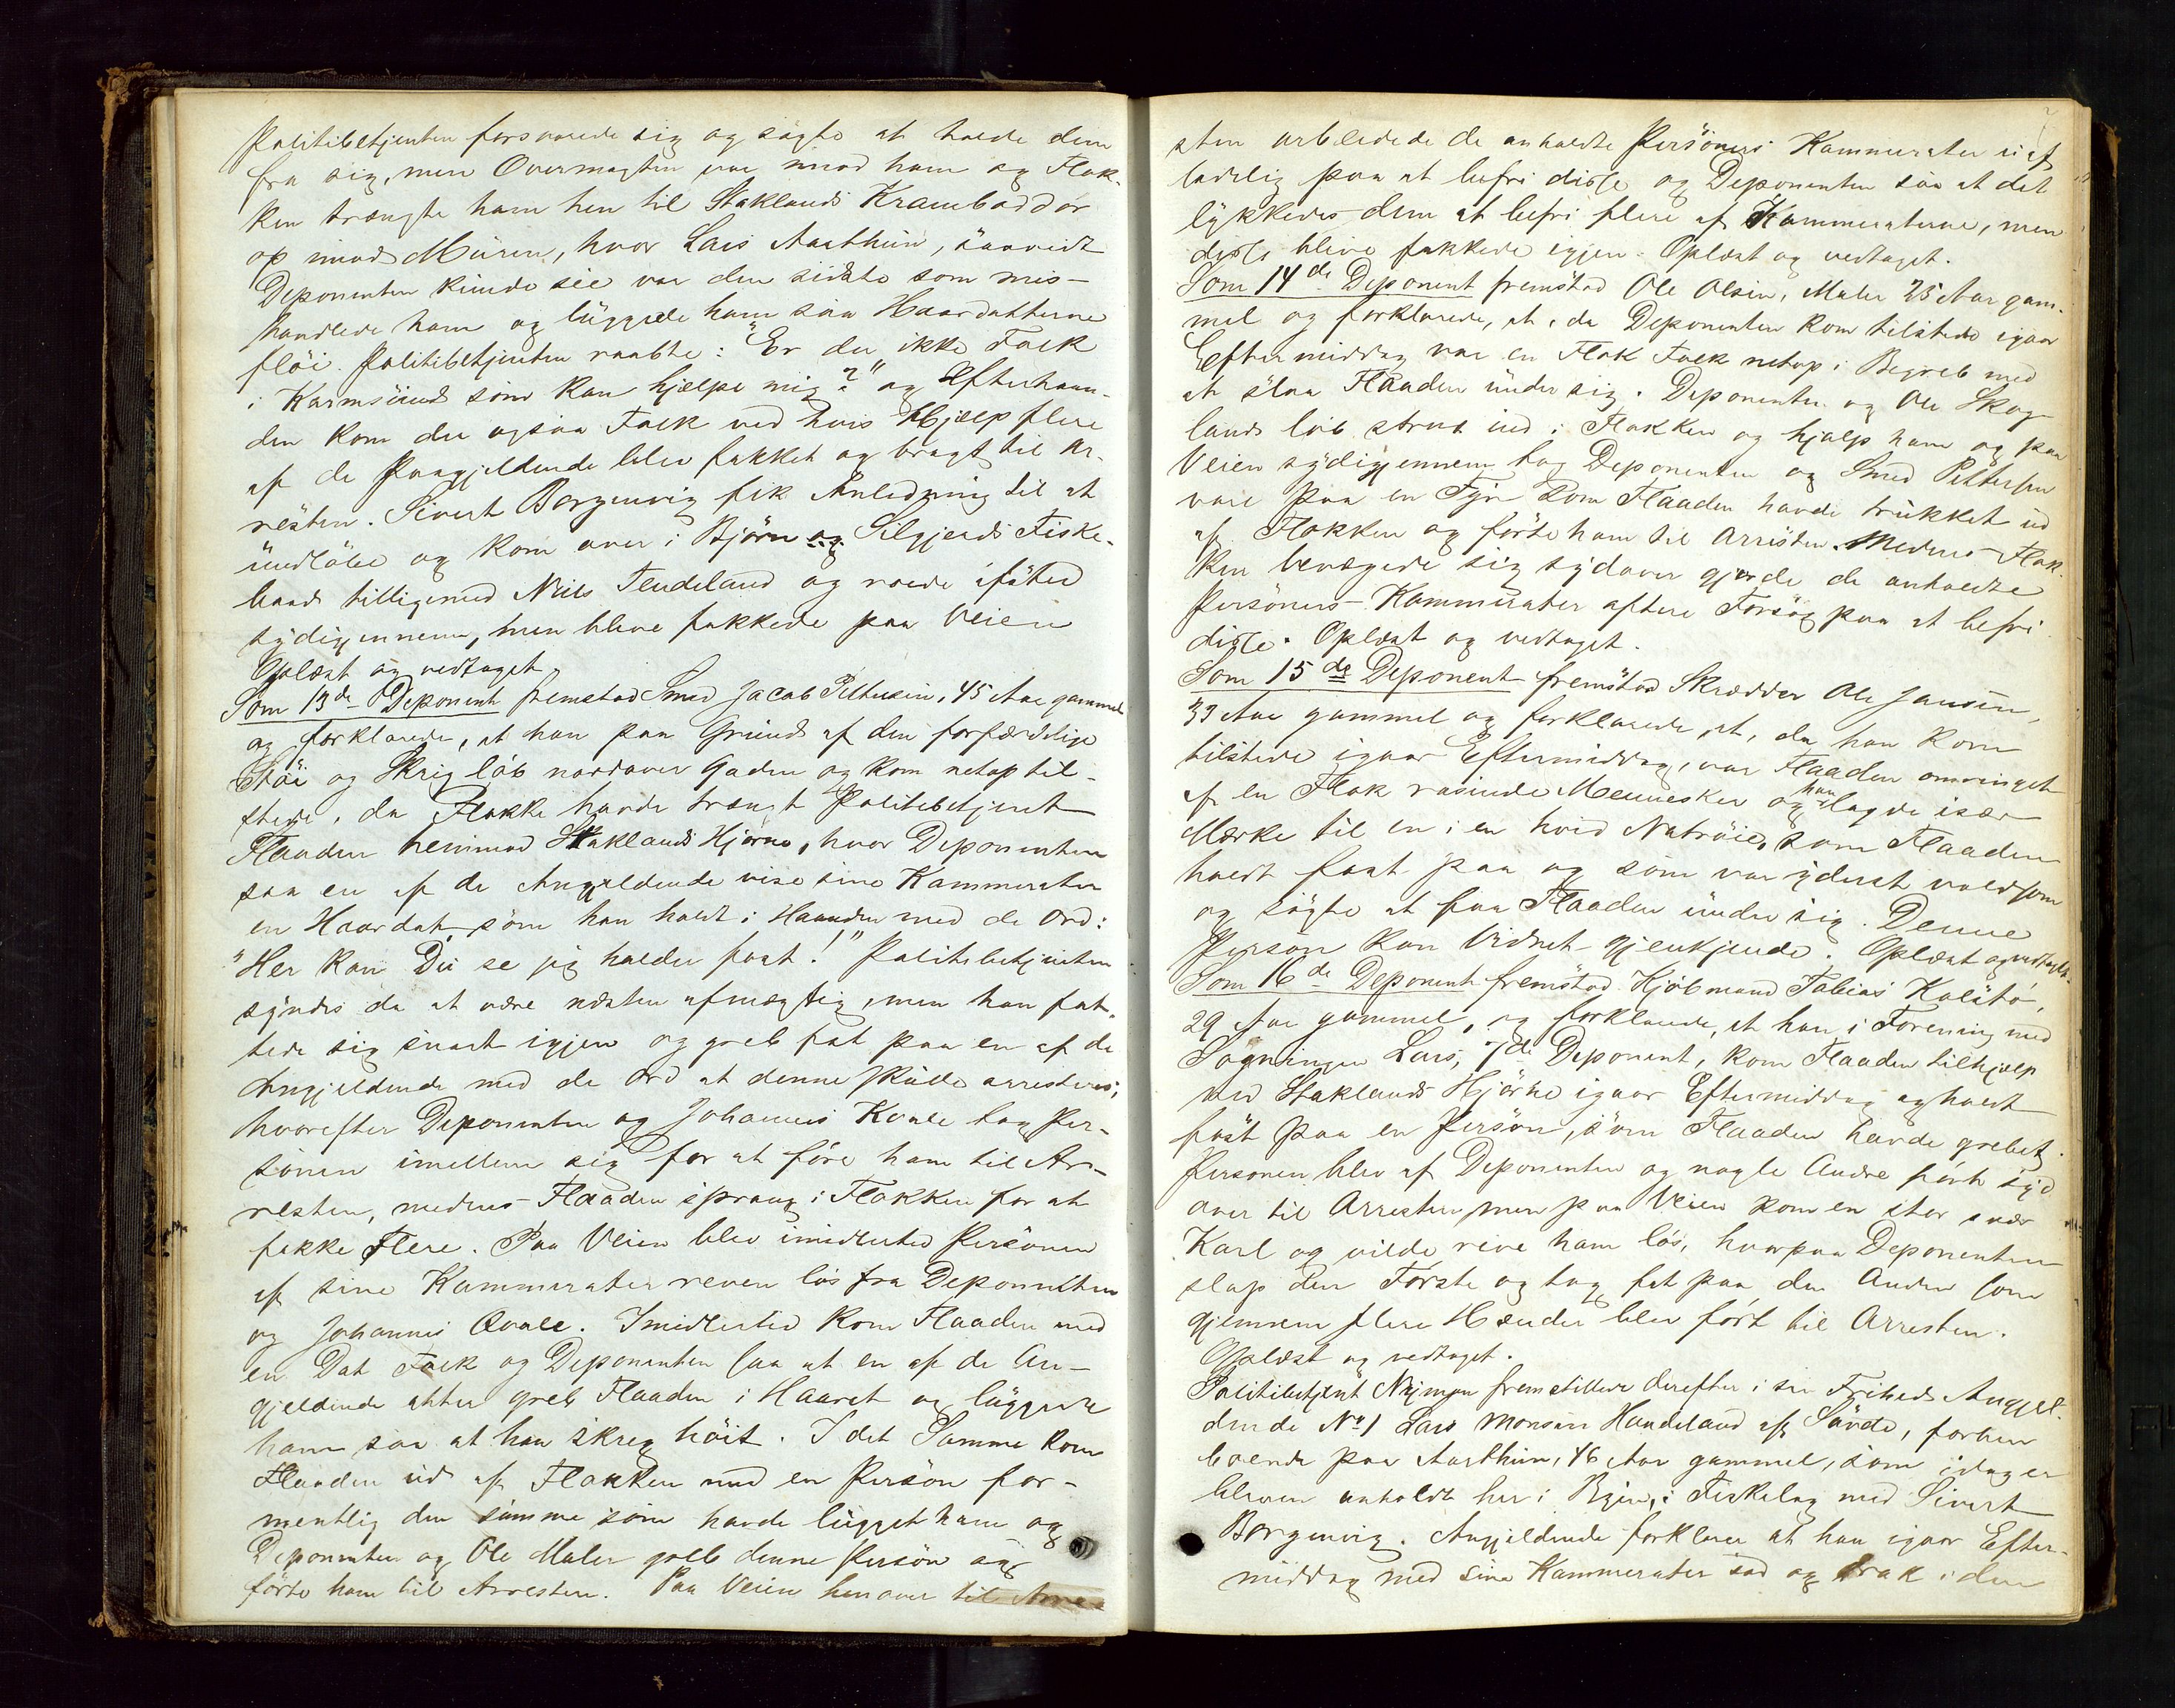 Politibetjenten forsvarede sig og søgte at holde dem
fra sig, men Overmagten var imod ham og Flok-
ken trængte ham hen til Staklands Kramboddør
op imod Muren, hvor Lars Aarthun, saavidt
Deponenten kunde see var den sidste som mis-
handlede ham og luggede ham saa Haardotterne
fløi. Politibetjenten raabte: "Er der ikke Folk
i Karmsund som kan hjælpe mig?" og Efterhaan-
den kom der ogsaa Folk ved hvis Hjælp flere
af de Paagjeldende blev pakket og bragt til Ar-
resten. Sivert Borgenvig fik Anledning til at
undløbe og kom over i Bjørn og Silgjerds Fiske-
baad tilligemed Niels Tendeland og roede afsted
sydigjennem, men bleve pakkede paa Veien
Oplæst og vedtaget.
Som 13de Deponent fremstod Smed Jacob Pettersen, 45 Aar gammel
og forklarede, at han paa Grund af den forfærdelige
Støi og Skrig løb nordover Gaden og kom netop til-
stede, da Flokke havde trængt Politibetjent
Flaaden henimod Staklands Hjørne, hvor Deponenten
saa en af de Angjeldende vise sine Kammerater
en Haardot, som han holdt i Haanden med de Ord:
"Her kan Du se jeg holder fast!" Politibetjenten
syndes da at være næsten afmægtig, men han fat-
tede sig snart igjen og greb fat paa en af de
Angjeldende med de Ord at denne skulle arresteres,
hvorefter Deponenten og Johannes Kvale tog Per-
sonen imellem sig for at føre ham til Ar-
resten, medens Flaaden sprang i Flokken for at
pakke Flere. Paa Veien blev imidlertid Personen
af sine Kammerater reven løs fra Deponenten
og Johannes Qvale. Imidlertid kom Flaaden med
en Dat Folk og Deponenten saa at en af de An-
gjeldende atter greb Flaaden i Haaret og luggede
ham saa at han skreg høit. I det Samme kom
Flaaden ud af Flokken med en Person for-
mentlig den samme som havde lugget ham og
Deponenten og Ole Maler greb denne Person og
førte ham til Arresten. Paa Veien henover til Arre-
sten arbeidede de anholdte Personers Kammerater uaf
ladelig paa at befri disse og Deponenten saa at det
lykkedes dem at befri flere af Kammeraterne, men
disse bleve pakkede igjen. Oplæst og vedtaget.
Som 14de Deponent fremstod Ole Olsen, Maler 25 Aar gam-
mel og forklarede, at, da Deponenten kom tilstede igaar
Eftermiddag var en Flok Folk netop i Begreb med
at slaa Flaaden under sig. Deponenten og Ole Skog-
lands løb strax ind i Flokken og hjalp ham og paa
Veien sydigjennem tog Deponenten og Smed Pettersen
vare paa en Fyr som Flaaden havde trukket ud
af Flokken og førte ham til Arresten. Medens Flok-
ken bevægede sig sydover gjorde de anholdte
Personers Kammerater oftere Forsøg paa at befri
disse. Oplæst og vedtaget.
Som 15de Deponent fremstod Skrædder Ole Jansen,
33 Aar gammel og forklarede, at, da han kom
tilstede igaar Eftermiddag, var Flaaden omringet
af en Flok rasende Mennesker og han lagde især
Mærke til en i en hvid Natrøie, som Flaaden
holdt fast paa og som var yderst voldsom
og søgte at faa Flaaden under sig. Denne
Person kan Vidnet gjenkjende. Oplæst og vedtaget.
Som 16de Deponent fremstod Kjøbmand Tobias Kalstø,
29 Aar gammel, og forklarede, at han i Forening med
Sogningen Lars, 7de Deponent, kom Flaaden tilhjælp
ved Staklands Hjørne igaar Eftermiddag og holdt
fast paa en Person, som Flaaden havde grebet.
Personen blev af Deponenten og nogle Andre ført syd
over til Arresten, men paa Veien kom en stor svær
Karl og vilde rive ham løs, hvorpaa Deponenten
slap den Første og tog fat paa den Anden som
gjennem flere Hænder blev ført til Arresten.
Oplæst og vedtaget.
Politibetjent Nyman fremstillede derefter i sin Frihed Angjel-
dende No 1 Lars Monsen Handeland af Søvde, forhen
boende paa Aarthun, 46 Aar gammel, som idag er
bleven anholdt her i Byen, i Fiskelag med Sivert
Borgenvig. Angjeldende forklarer at han igaar Efter-
middag med sine Kammerater sad og drak i den